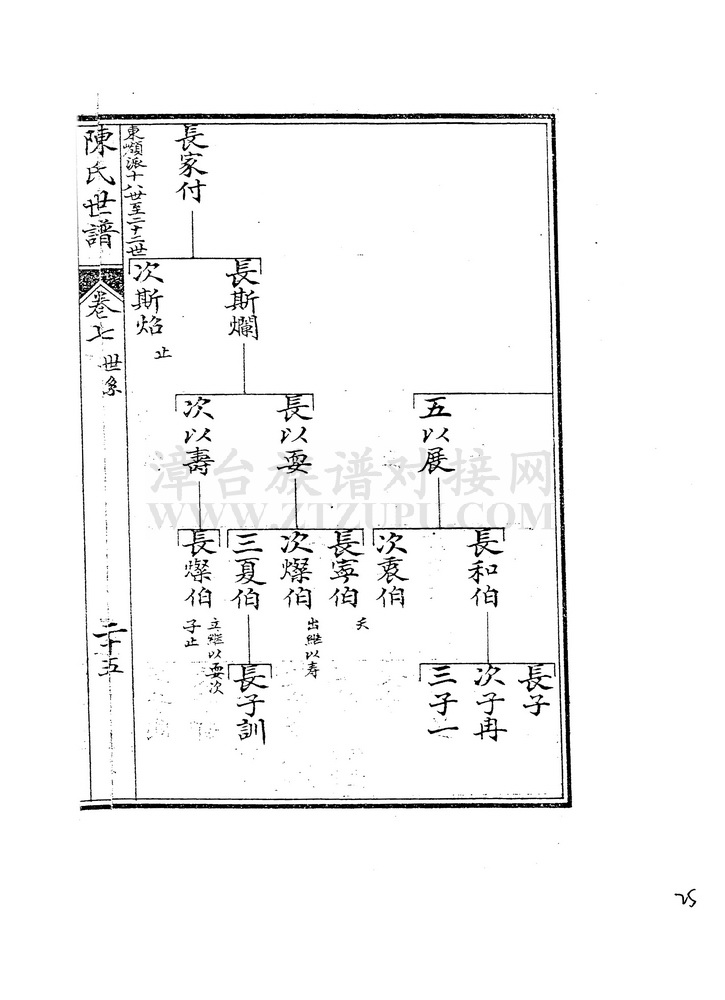 長家付
長斯爛
次斯焰
止
五以展
長以耍
次以壽
長和伯
次袞伯
長寧伯
夭
次燦伯
出繼以寿
三夏伯
長燦伯
立繼以耍次
子止
長子
次子冉
三子一
長子訓
東頭派十八世至二十二世
陳氏世譜
卷七
世系
二十五
漳台族谱对接网
WWW.ZTZUPU.COM
25